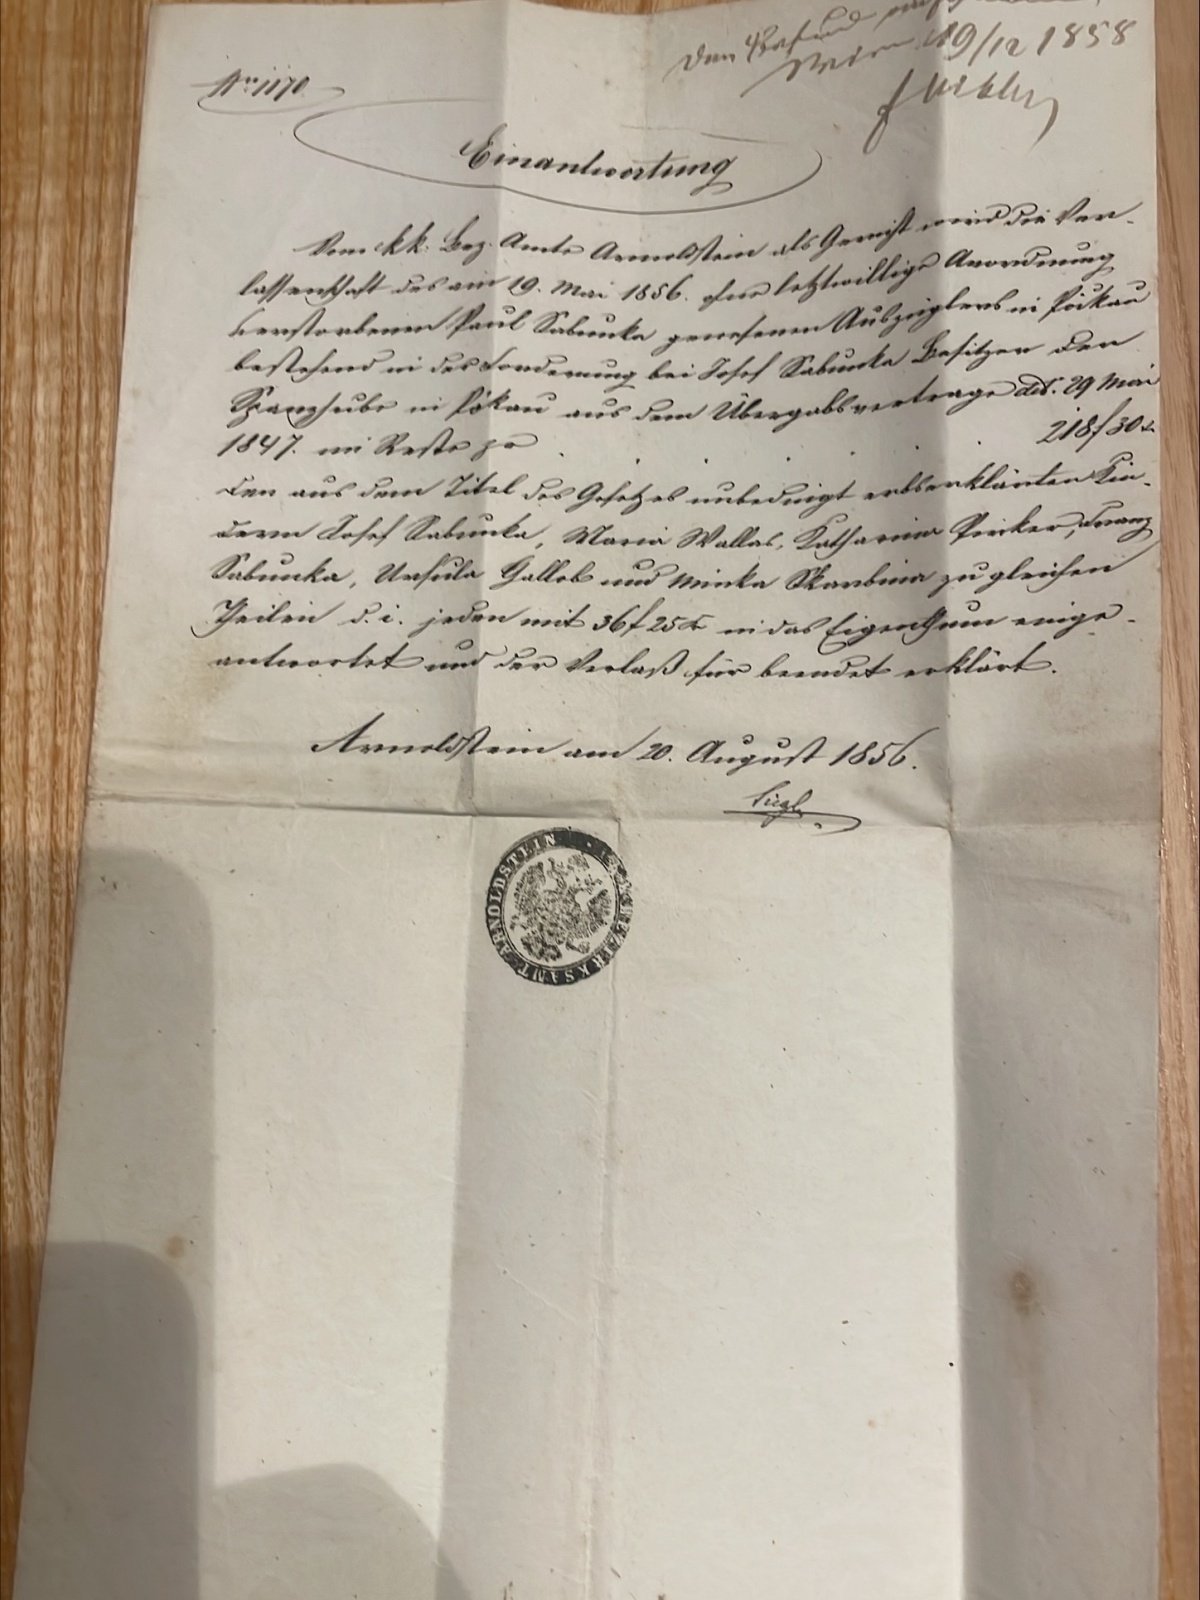 Den
Wien 19/12 1858
Nro 1170
Einantwortung
Vom kk. Bez. Amte Arnoldstein als Gericht wird die Ver-
lassenschaft des am 19. Mai 1856. ohne letztwillige Anordnung
verstorbenen Paul Sabunka gewesenen Auszüglers in Pöckau
bestehend in der Forderung bei Josef Sabunka Besitzer der
in Pökau aus dem Übergabsvertrage ddt. 29 Mai
1847. im Reste pr 218f 30 x
den aus dem Titel des Gesetzes unbedingt erbserklärten Kin-
dern Josef Sabunka, Maria Wallas, Katharina Pirker, Franz
Sabunka, Ursula Gallob und Minka Skarbina zu gleichen
Theilen d. i. jeden mit 36f 25 x in das Eigenthum einge-
antwortet und der Verlaß für beendet erklärt.
Arnoldstein am 20. August 1856.
K.K. BEZIRKSAMT ARNOLDSTEIN